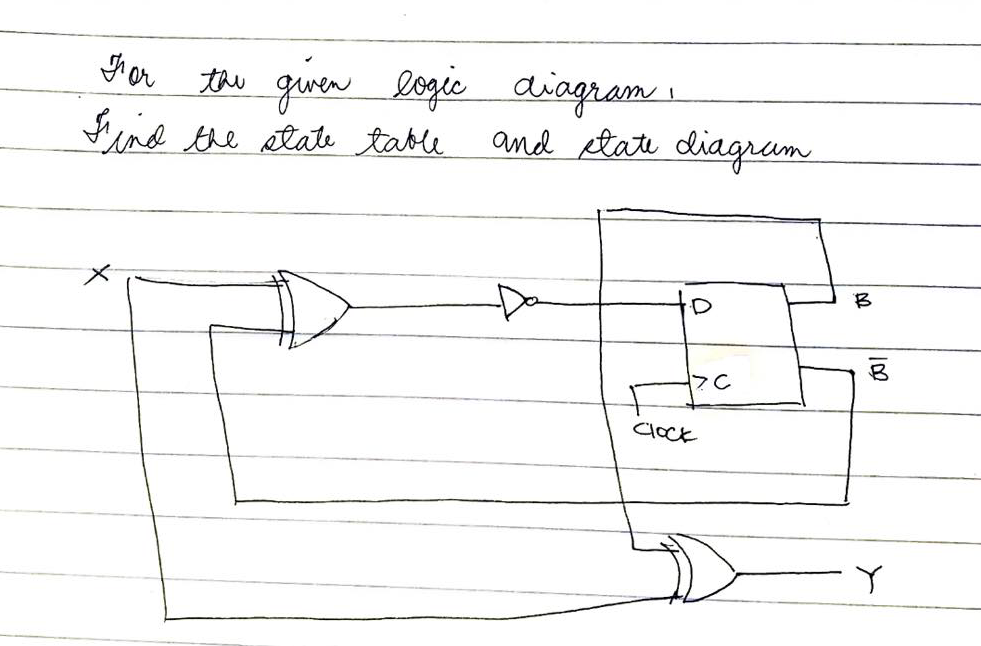 For the given logic diagram,
Find the state table and state diagram
X
D
B
>C
B̅
Clock
Y